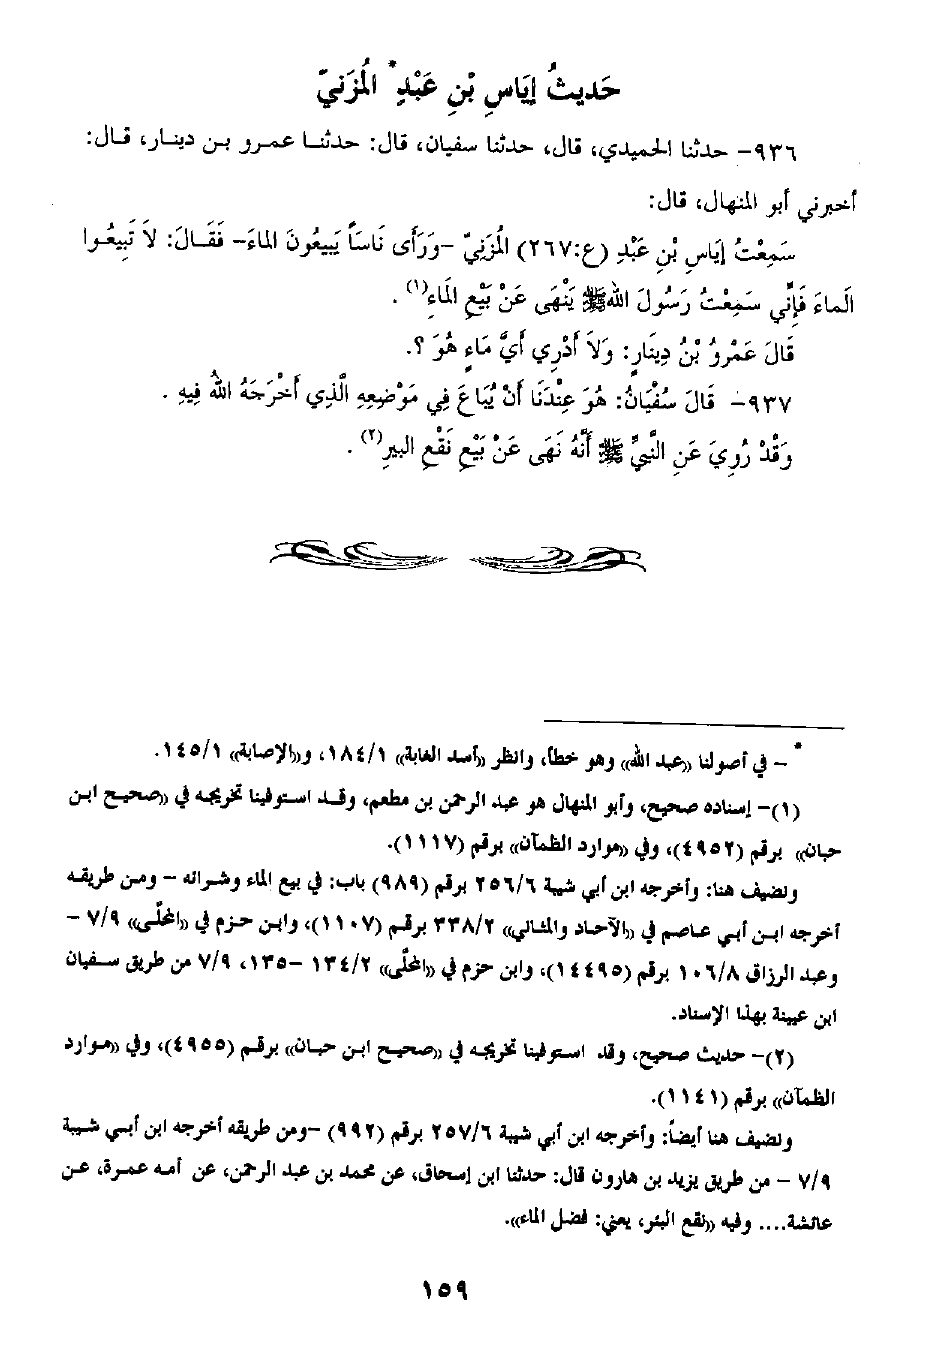 حَديثُ إيَاسِ بْنِ عَبْدٍ* المُزَنيّ
٩٣٦- حدثنا الحميدي، قال، حدثنا سفيان، قال: حدثنا عمرو بن دينار، قال:
أخبرني أبو المنهال، قال:
سَمِعْتُ إيَاسِ بْنِ عَبْدِ (ع:٢٦٧) المُزَنِيّ -وَرَأى نَاسَاً يَبيعُونَ الماءَ- فَقَالَ: لاَ تَبِيعُوا
الَماءَ فَإنِّي سَمِعْتُ رَسُولَ اللهﷺ يَنْهَى عَنْ بَيْعِ الَماءِ(١) .
قَالَ عَمْرُو بْنُ دِينَارٍ: وَلاَ أدْرِي أيَّ مَاءٍ هُوَ ؟.
٩٣٧- قَالَ سُفْيَانُ: هُوَ عِنْدَنَا أنْ يُبَاعَ فِي مَوْضِعِهِ الَّذِي أخْرَجَهُ اللهُ فِيهِ .
وَقَدْ رُوِيَ عَنِ النَّبِيِّ ﷺ أنَّهُ نَهَى عَنْ بَيْعِ نَقْعِ البيرِ(٢) .
* - في أصولنا «عبد الله» وهو خطأ، وانظر «أسد الغابة» ١٨٤/١، و«الإصابة» ١٤٥/١.
(١)- إسناده صحيح، وأبو المنهال هو عبد الرحمن بن مطعم، وقد استوفينا تخريجه في «صحيح ابن
حبان» برقم (٤٩٥٢)، وفي «موارد الظمآن» برقم (١١١٧).
ونضيف هنا: وأخرجه ابن أبي شيبة ٢٥٦/٦ برقم (٩٨٩) باب: في بيع الماء وشرائه - ومن طريقه
أخرجه ابن أبي عاصم في «الآحاد والمثاني» ٣٣٨/٢ برقم (١١٠٧)، وابن حزم في «المحلّى» ٧/٩ -
وعبد الرزاق ١٠٦/٨ برقم (١٤٤٩٥)، وابن حزم في «المحلّى» ١٣٤/٢ -١٣٥، ٧/٩ من طريق سفيان
ابن عيينة بهذا الإسناد.
(٢)- حديث صحيح، وقد استوفينا تخريجه في «صحيح ابن حبان» برقم (٤٩٥٥)، وفي «موارد
الظمآن» برقم (١١٤١).
ونضيف هنا أيضاً: وأخرجه ابن أبي شيبة ٢٥٧/٦ برقم (٩٩٢) -ومن طريقه أخرجه ابن أبي شيبة
٧/٩ - من طريق يزيد بن هارون قال: حدثنا ابن إسحاق، عن محمد بن عبد الرحمن، عن أمه عمرة، عن
عائشة.... وفيه «نقع البئر، يعني: فضل الماء».
١٥٩